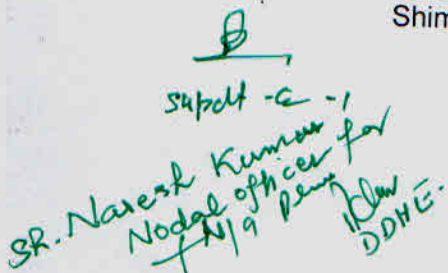 Shim
Supdt -C -1
SR. Naresh Kumar,
Nodal officer for
N/a
DDHE.